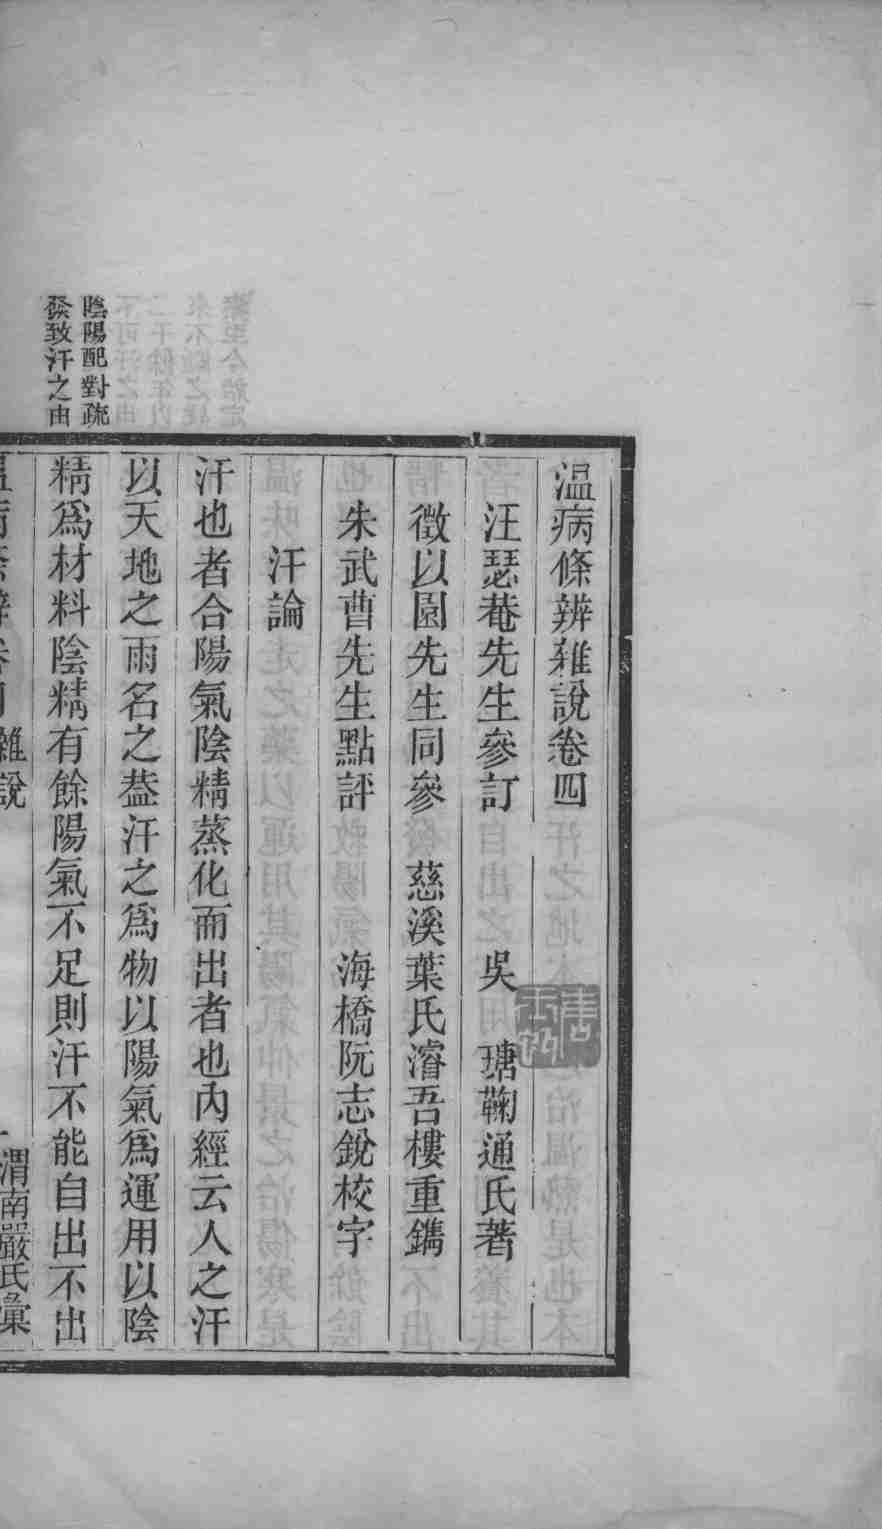 溫病條辨雜說卷四
汪瑟菴先生參訂 吳 瑭鞠通氏著
徵以園先生同參 慈溪葉氏濬吾樓重鐫
朱武曹先生點評 海橋阮志銳校字
汗論
汗也者合陽氣陰精蒸化而出者也內經云人之汗
以天地之雨名之葢汗之爲物以陽氣爲運用以陰
精爲材料陰精有餘陽氣不足則汗不能自出不出
陰陽配對疏
發致汗之由
溫病條辨卷四 雜說 一 渭南嚴氏彙